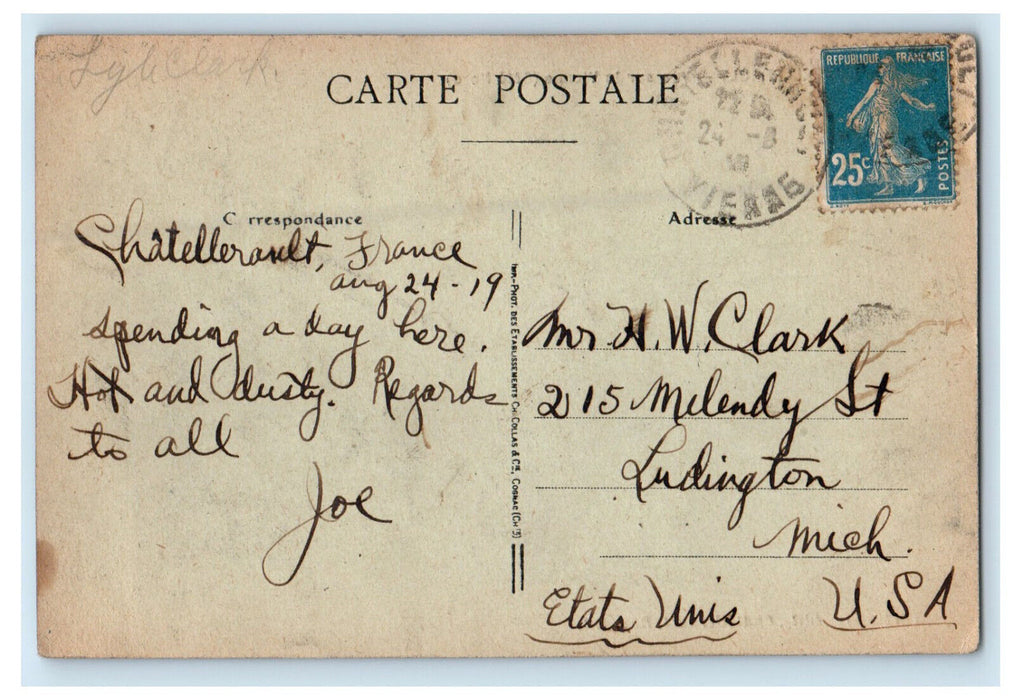 Lyle Clark.
CARTE POSTALE
CHATELLERAULT
24 -8
VIENNE
REPUBLIQUE FRANÇAISE
25c
POSTES
C rrespondance
Adresse
Châtellerault, France
Aug 24-19
spending a day here.
Hot and dusty. Regards
to all
Joe
IMP.-PHOT. DES ETABLISSEMENTS CH. COLLAS & Cie, COGNAC (CHte)
Mr H. W. Clark
215 Melendy St
Ludington
Mich.
Etats Unis U.S A